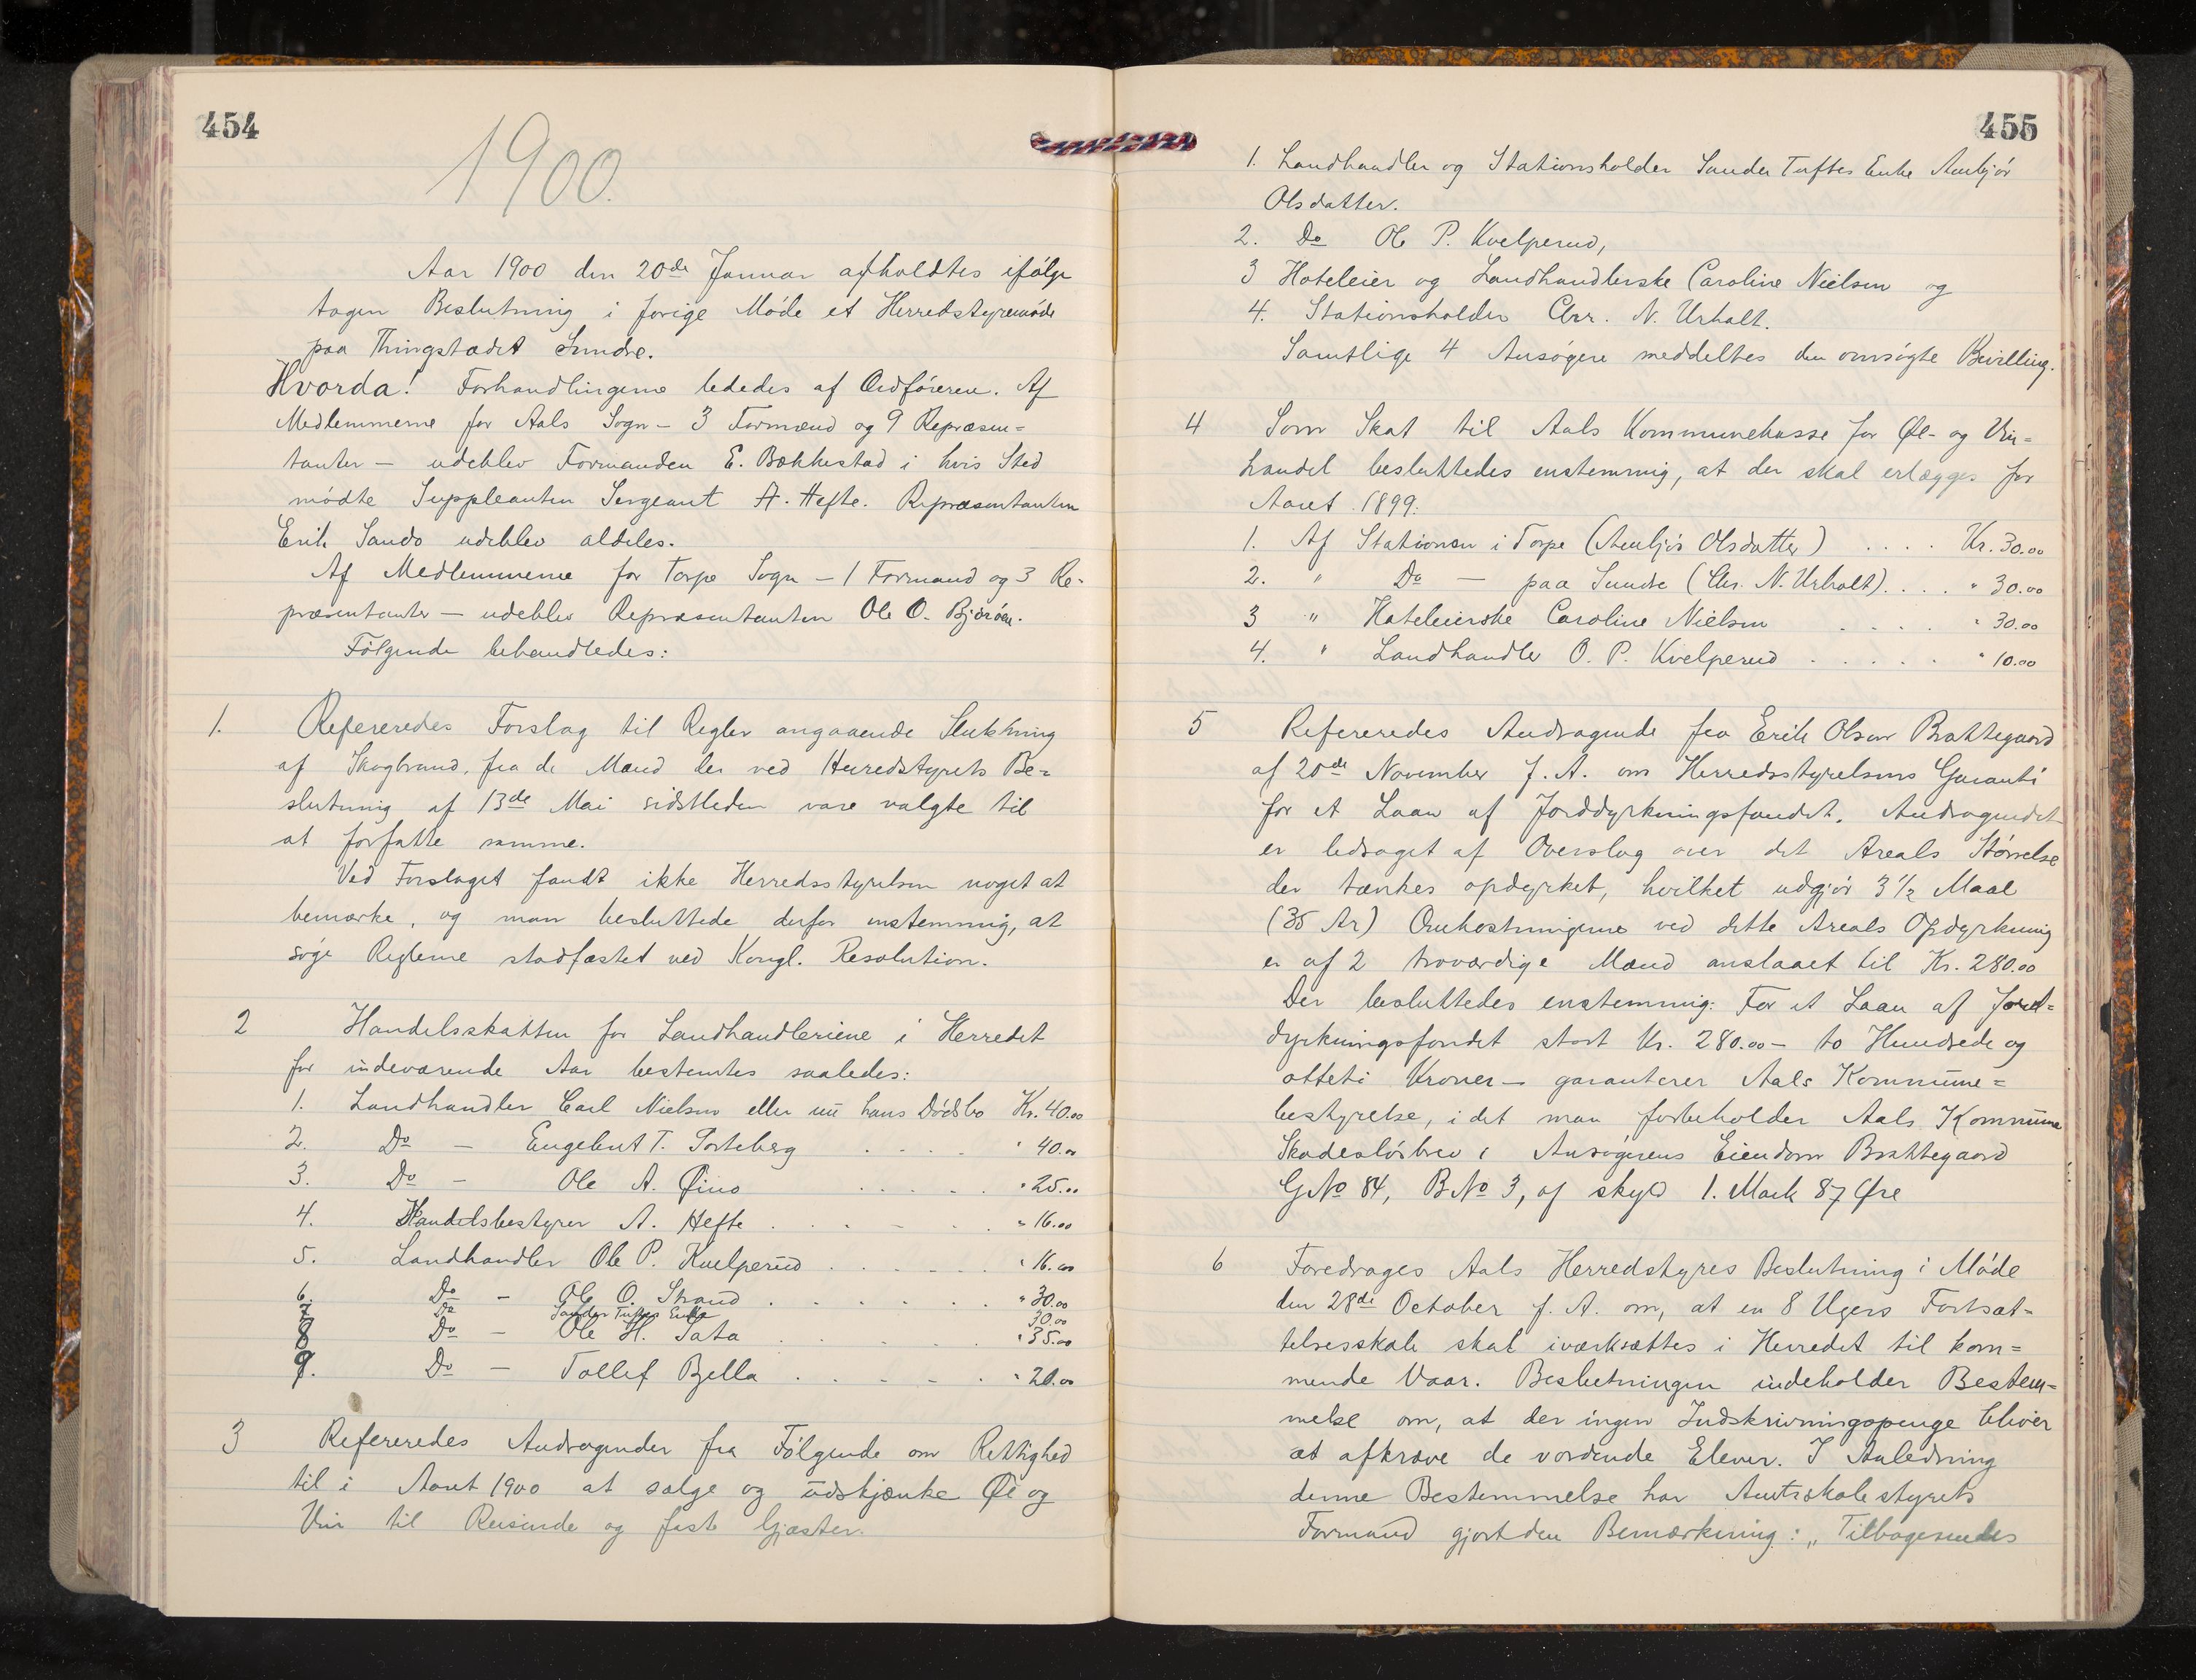 454
1900.
Aar 1900 den 20de Januar afholdtes ifølge
tagen Beslutning i forige Møde et Herredstyremøde
paa Thingstædet Sundre.
Hvorda! Forhandlingerne lededes af Ordføreren. Af
Medlemmerne for Aals Sogn – 3 Formænd og 9 Repræsen=
tanter – udeblev Formanden E. Bækkestad i hvis Sted
mødte Suppleanten Sergeant A. Hefte. Repræsentanten
Erik Sando udeblev aldeles.
Af Medlemmerne for Torpe Sogn – 1 Formand og 3 Re-
præsentanter – udeblev Repræsentanten Ole O. Bjørøen.
Følgende behandledes:
1. Refereredes Forslag til Regler angaaende Slukning
af Skogbrand, fra de Mænd der ved Herredstyrets Be=
slutning af 13de Mai sidstleden vare valgte til
at forfatte samme.
Ved Forslaget fandt ikke Herredsstyrelsen noget at
bemærke, og man besluttede derfor enstemmig, at
søge Reglerne stadfæstet ved Kongl. Resolution.
2 Handelsskatten for Landhandleriene i Herredet
for indeværende Aar bestemtes saaledes:
1. Landhandler Carl Nielsen eller nu hans Dødsbo Kr. 40.00
2. Do – Engebret T. Porteberg . . . . " 40.00
3. Do – Ole A. Øino . . . . . " 25.00
4. Handelsbestyrer A. Hefte . . . . . " 16.00
5. Landhandler Ole P. Kvelprud . . . . . . " 16.00
6. Do – Ole O. Strand . . . . . . . " 30.00
7 Do Sander Tuftes Enke 30.00
8 Do – Ole H. Sata . . . . . " 35.00
9. Do – Tollef Bjella . . . . . " 20.00
3 Refereredes Andragender fra Følgende om Rettighed
til i Aaret 1900 at sælge og udskjænke Øl og
Vin til Reisende og faste Gjæster.
455
1. Landhandler og Stationsholder Sander Tuftes Enke Ambjør
Olsdatter.
2. Do Ole P. Kvelperud,
3 Hoteleier og Landhandlerske Caroline Nielsen og
4. Stationsholder Chr. N. Urhalt.
Samtlige 4 Ansøgere meddeltes den omsøgte Bevilling.
4 Som Skat til Aals Kommunekasse for Øl- og Vin=
handel besluttedes enstemmig, at der skal erlægges for
Aaret 1899:
1. Af Stationen i Torpe (Ambjør Olsdatter) . . . . Kr. 30.00
2. " Do – paa Sundre (Chr. N. Urhalt). . . . " 30.00
3 " Hoteleierske Caroline Nielsen . . . . " 30.00
4. " Landhandler O. P. Kvelperud . . . . . . " 10.00
5 Refereredes Andragende fra Erik Olsen Brattegaard
af 20de November f. A. om Herredsstyrelsens Garanti
for et Laan af Jorddyrkningsfondet. Andragendet
er ledsaget af Overslag over det Areals Størrelse
der tænkes opdyrket, hvilket udgjør 3 1/2 Maal
(35 Ar) Omkostningerne ved dette Areals Opdyrkning
er af 2 troværdige Mænd anslaaet til Kr. 280.00
Der besluttedes enstemmig: For et Laan af Jord=
dyrkningsfondet stort Kr. 280.00 – to Hundrede og
otteti Kroner – garanterer Aals Kommune=
bestyrelse, i det man forbeholder Aals Kommune
Skadesløsbrev i Ansøgerens Eiendom Brattegaard
G No 84, B No 3, af skyld 1. Mark 87 Øre
6 Foredrages Aals Herredstyres Beslutning i Møde
den 28de October f. A. om, at en 8 Ugers Fortsæt=
telsesskole skal iværksættes i Herredet til kom=
mende Vaar. Beslutningen indeholder Bestem=
melse om, at der ingen Indskrivningspenge bliver
at afkræve de vordende Elever. I Anledning
denne Bestemmelse har Amtsskolestyrets
Formand gjort den Bemærkning: „Tilbagesendes